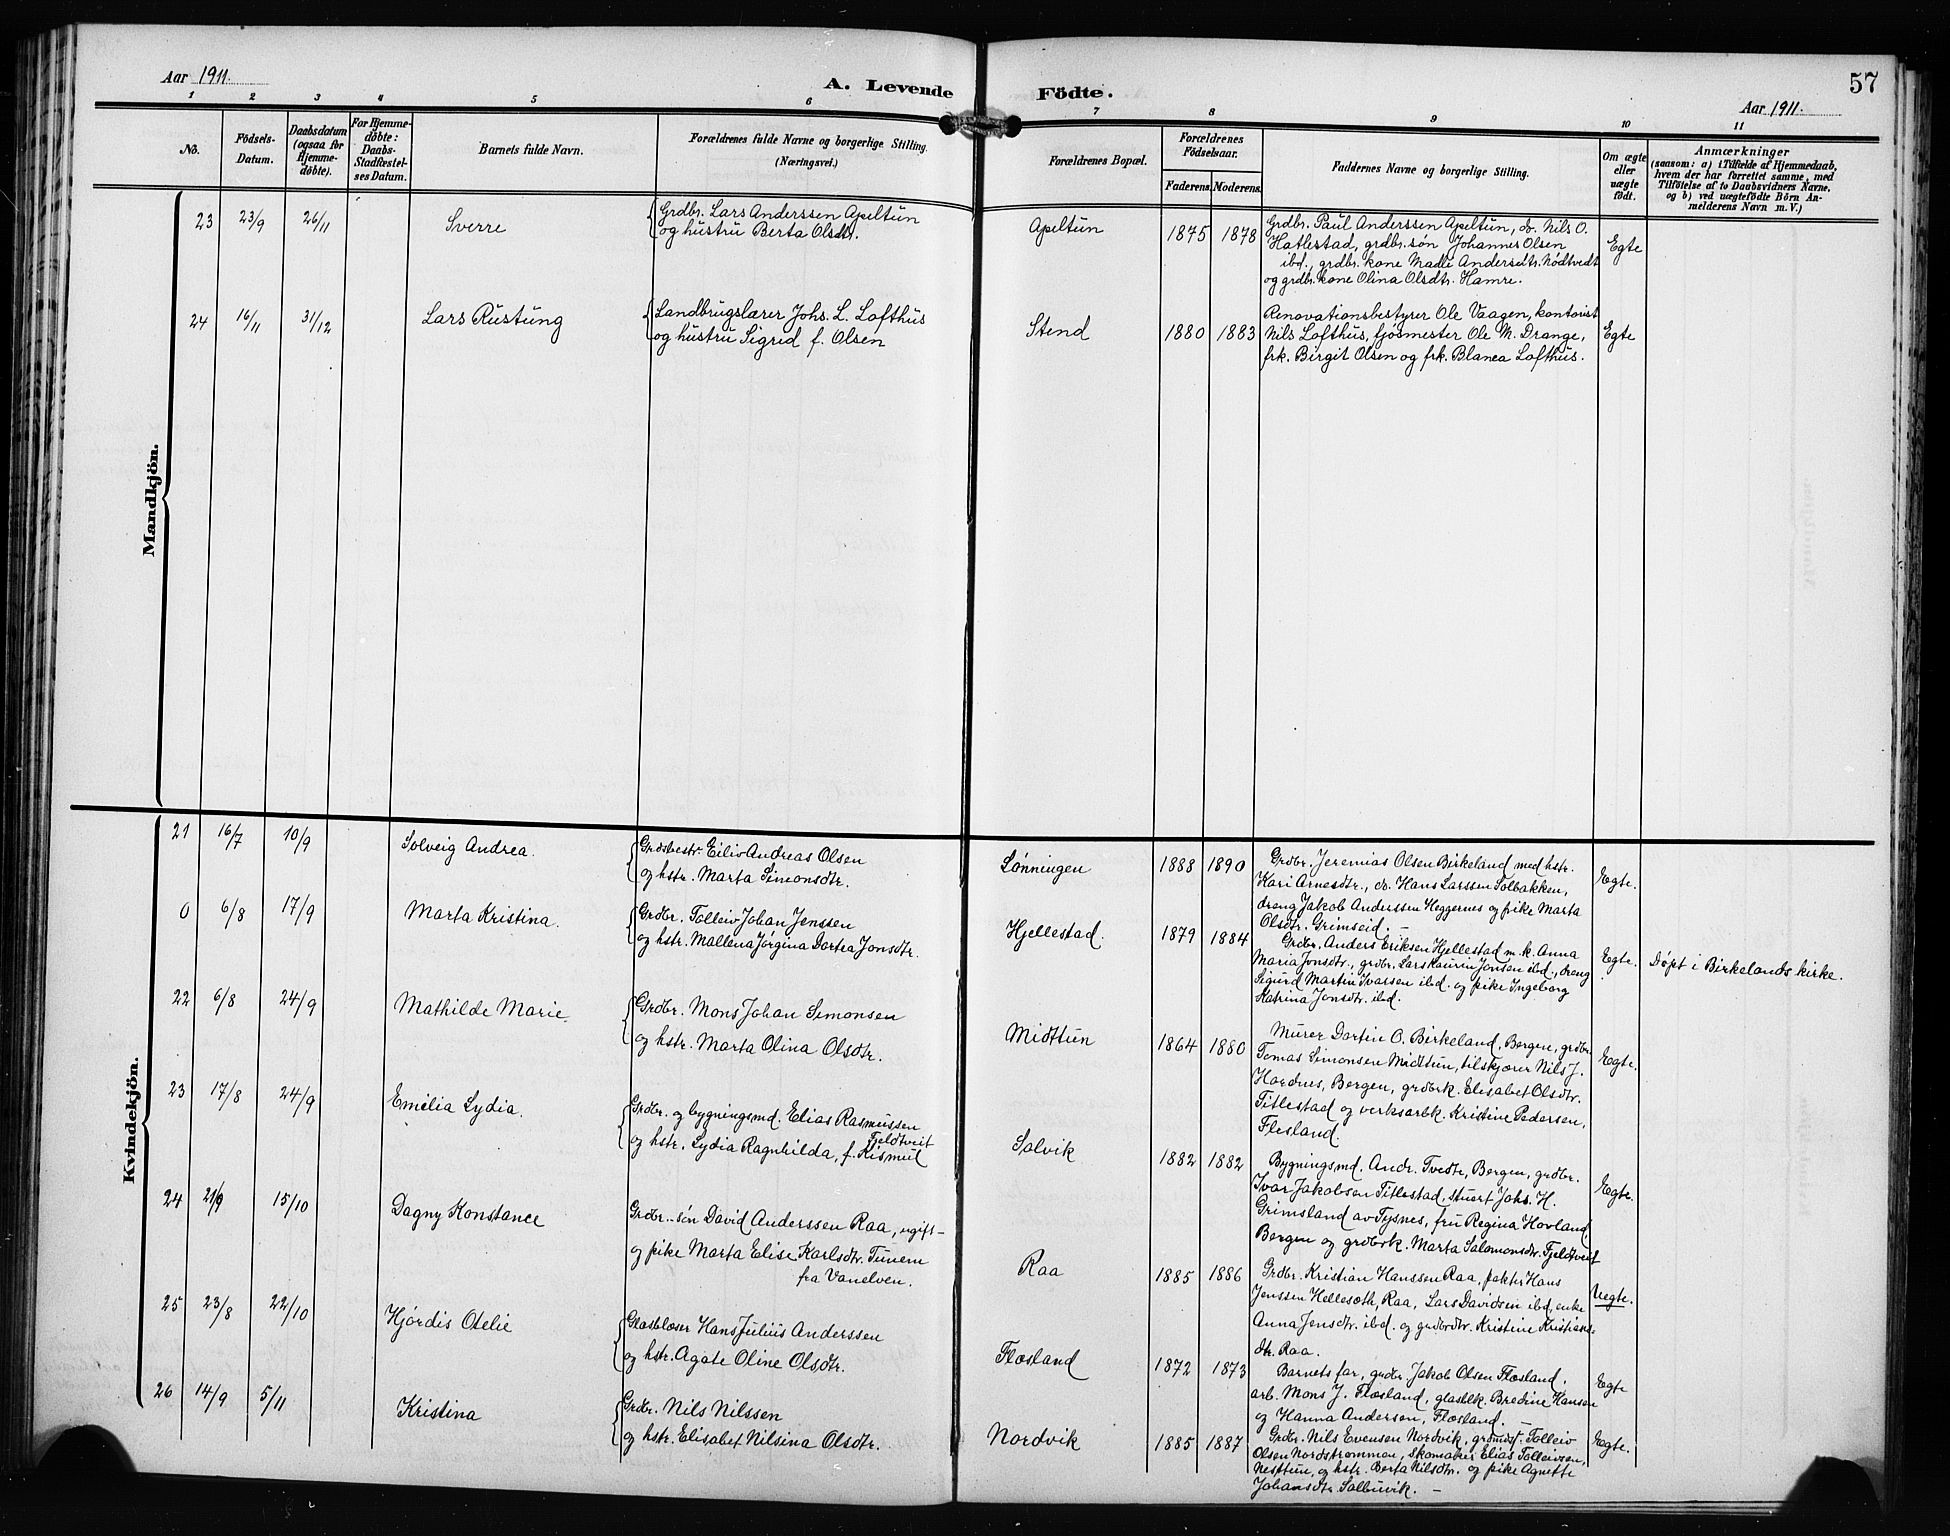 Aar 1911.
A. Levende Födte.
57
Aar 1911.
1 2 3 4 5 6 7 8 9 10 11
No.
Födsels-Datum.
Daabsdatum (ogsaa for Hjemme-döbte).
For Hjemme-döbte: Daabs-Stadfæstel-ses Datum.
Barnets fulde Navn.
Forældrenes fulde Navne og borgerlige Stilling.
(Næringsvei.)
Forældrenes Bopæl.
Forældrenes Födselsaar.
Faderens. Moderens.
Faddernes Navne og borgerlige Stilling.
Om ægte eller uægte födt.
Anmærkninger
(saasom: a) i Tilfælde af Hjemmedaab, hvem der har forrettet samme, med Tilföielse af to Daabsvidners Navne, og b) ved uægtefödte Börn An-melderens Navn m. V.)
Mandkjön.
23 23/9 26/11 Sverre
Grdbr. Lars Anderssen Apeltun
og hustru Berta Olsdtr.
Apeltun 1875 1878
Grdbr. Paul Anderssen Apeltun, do. Nils O.
Hatlestad, grdbr.søn Johannes Olsen
ibd., grdbr. kone Madli Andersdtr. Nødtvedt
og grdbr. kone Olina Olsdtr. Hamre.
Egte
24 16/11 31/12 Lars Rustung
Landbrugslærer Johs. L. Lofthus
og hustru Sigrid f. Olsen
Stend 1880 1883
Renovationsbestyrer Ole Vaagen, kontorist
Nils Lofthus, fjøsmester Ole M. Drange,
frk. Birgit Olsen og frk. Blanca Lofthus.
Egte
Kvindekjön.
21 16/7 10/9 Solveig Andrea.
Grdsbestr. Eiliv Andreas Olsen
og hstr. Marta Simonsdtr.
Lønningen 1888 1890
Grdbr. Jeremias Olsen Birkeland med hstr.
Kari Arnesdtr., do. Hans Larssen Solbakken,
dreng Jakob Anderssen Heggernes og pike Marta
Olsdtr. Grimseid. –
Egte.
0 6/8 17/9 Marta Kristina.
Grdbr. Tolleiv Johan Jenssen
og hstr. Mallena Jørgina Dortea Jonsdtr.
Hjellestad. 1879 1884
Grdbr. Anders Eriksen Hjellestad m. k. Anna
Maria Jonsdtr., grdbr. Lars Kaurin Jonsen ibd., dreng
Sigurd Martin Ivarssen ibd. og pike Ingeborg
Katrina Jonsdtr. ibd.
Egte.
Døpt i Birkelands kirke.
22 6/8 24/9 Mathilde Marie.
Grdbr. Mons Johan Simonsen
og hstr. Marta Olina Olsdtr.
Midttun 1864 1880
Murer Dortin O. Birkeland, Bergen, grdbr.
Tomas Simonsen Midttun, tilskjærer Nils J.
Hordnes, Bergen, grdbrk. Elisabet Olsdtr.
Titlestad og verksarbk. Kristine Pedersen,
Flesland.
Egte.
23 17/8 24/9 Emelia Lydia.
Grdbr. og bygningsmd. Elias Rasmussen
Fjeldtveit
og hstr. Lydia Ragnhilda, f. Kismul
Solvik 1882 1882
Bygningsmd. Andr. Tvedt, Bergen, grdbr.
Ivar Jakobsen Titlestad, stuert Johs. H.
Grimsland av Tysnes, fru Regina Hovland,
Bergen og grdbrk. Marta Salomonsdtr. Fjeldtveit
Egte.
24 21/9 15/10 Dagny Konstance
Grdbr.-søn David Anderssen Raa, ugift –
og pike Marta Elise Karlsdtr. Tunem
fra Vanelven.
Raa 1885 1886
Grdbr. Kristian Hanssen Raa, pakter Hans
Jenssen Hellesøth, Raa, Lars Davidsen ibd, enke
Anna Jensdtr. ibd. og grdbrdtr. Kristine Kristians-
dtr. Raa.
Uegte.
25 23/8 22/10 Hjørdis Otelie
Glasblæser Hans Julius Anderssen
og hstr. Agate Oline Olsdtr.
Flæsland 1872 1873
Barnets far, grdbr. Jakob Olsen Flæsland,
arb. Mons J. Flæsland, glasblk. Bredine Hansen
og Hanna Andersen, Flæsland. –
Egte
26 14/9 5/11 Kristina
Grdbr. Nils Nilssen
og hstr. Elisabet Nilsina Olsdtr.
Nordvik 1885 1887
Grdbr. Nils Evensen Nordvik, grdmd. Tolleiv
Olsen Nordstrømmen, skomaker Elias Tolleivsen,
Nesttun, og hstr. Berta Nilsdtr. og pike Agnette
Johansdtr. Solbuvik. –
Egte.